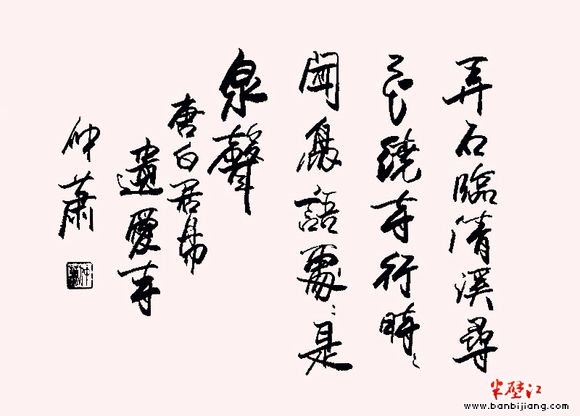 弄石臨清溪尋
花繞寺行時〻
聞鳥語處〻是
泉聲
唐白居易
遺愛寺
仲蕭
半壁江
www.banbijiang.com